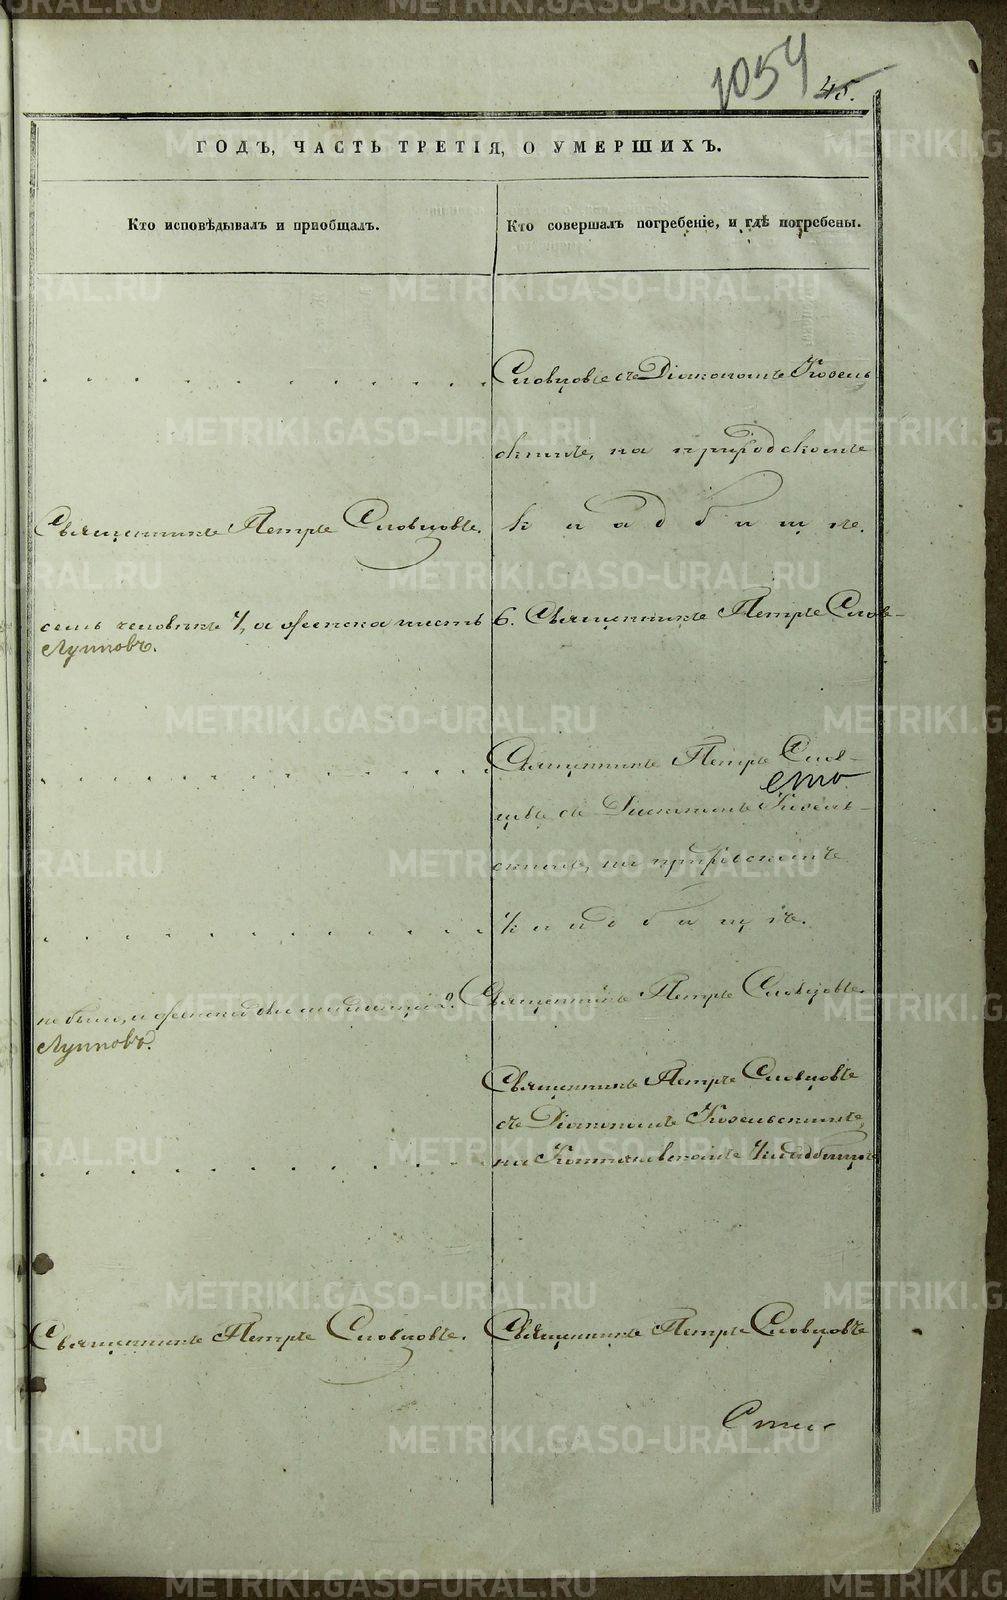 1054 45.
ГОДЪ, ЧАСТЬ ТРЕТІЯ, О УМЕРШИХЪ.
Кто исповѣдывалъ и пріобщалъ.
Кто совершалъ погребеніе, и гдѣ погребены.
Словцовъ съ Діакономъ Козель
скимъ, на приходскомъ
Священникъ Петръ Словцовъ.
кладбищѣ.
семь человѣкъ 7, а женска шесть 6. Священникъ Петръ Слов-
Лупповъ.
Священникъ Петръ Слов-
цовъ съ Діакономъ Козель-
скимъ, на приходскомъ
кладбищѣ.
не было, а женска два
Священникъ Петръ Словцовъ.
Лупповъ.
Священникъ Петръ Словцовъ
съ Діакономъ Козельскимъ,
на кладбищѣ
Священникъ Петръ Словцовъ.
Священникъ Петръ Словцовъ
METRIKI.GASO-URAL.RU